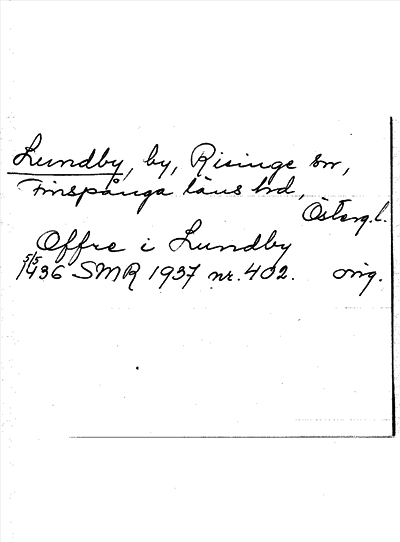 Lundby, by, Risinge sn,
Finspånga läns hd,
Österg. l.
Offre i Lundby
5/5 1436 SMR 1937 nr. 402. orig.